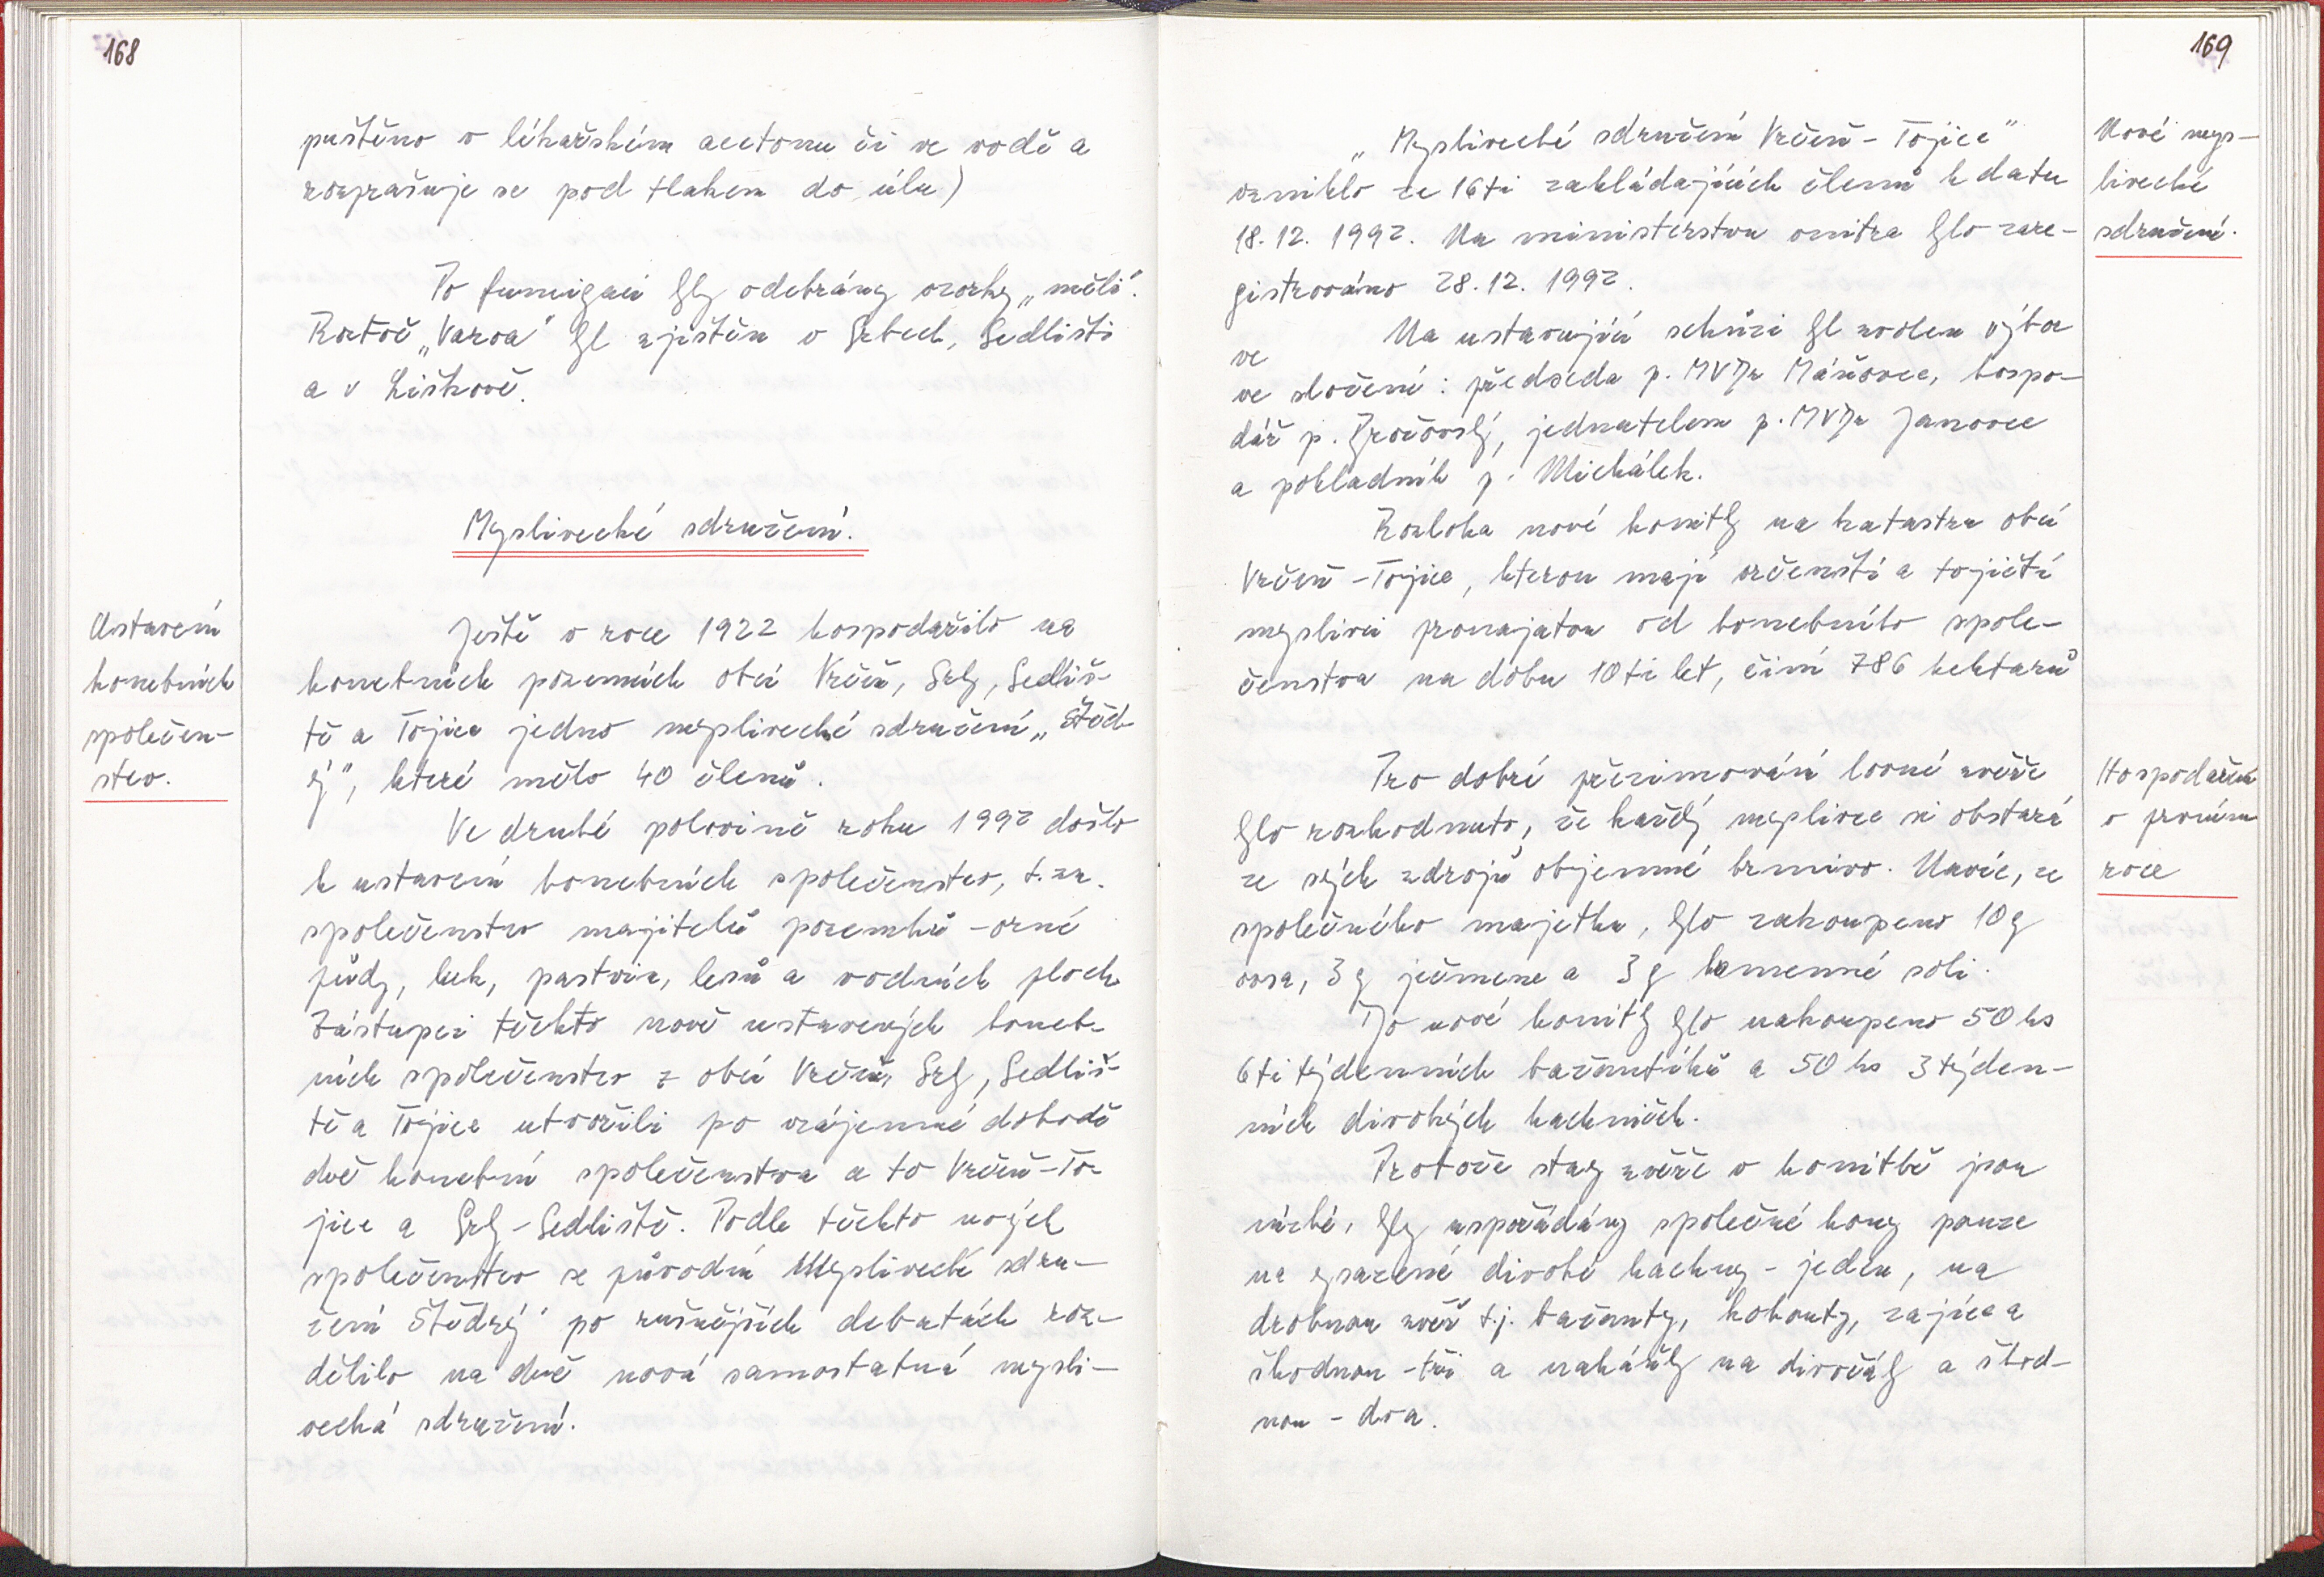 168
puštěno v lékařském acetonu či ve vodě a
rozprašuje se pod tlakem do úlu)
Po fumigaci byly odebrány vzorky „měli".
Roztoč „Varoa" byl zjištěn v Srbech, Sedlišti
a v Liškově.
Myslivecké sdružení.
Ustavení
honebních
společen-
stev.
Ještě v roce 1922 hospodařilo na
honebních pozemcích obcí Vrčeň, Srby, Sedliš-
tě a Tojice jedno myslivecké sdružení „Štěd-
rý", které mělo 40 členů.
Ve druhé polovině roku 1992 došlo
k ustavení honebních společenstev, t.zn.
společenstev majitelů pozemků - orné
půdy, luk, pastvin, lesů a vodních ploch.
Zástupci těchto nově ustavených honeb-
ních společenstev z obcí Vrčeň, Srby, Sedliš-
tě a Tojice utvořili po vzájemné dohodě
dvě honební společenstva a to Vrčeň-To-
jice a Srby-Sedliště. Podle těchto nových
společenstev se původní Myslivecké sdru-
žení Štědrý" po rušnějších debatách roz-
dělilo na dvě nová samostatná mysli-
vecká sdružení.
169
„Myslivecké sdružení Vrčeň - Tojice"
vzniklo ze 16ti zakládajících členů k datu
18.12.1992. Na ministerstvu vnitra bylo zare-
gistrováno 28.12.1992.
Nové mys-
livecké
sdružení.
Na ustavující schůzi byl zvolen výbor
ve
ve složení: předseda p. MVDr Mášovec, hospo-
dář p. Hročovský, jednatelem p. MVDr Janovec
a pokladník p. Michálek.
Rozloha nové honitby na katastru obcí
Vrčeň - Tojice, kterou mají vrčenští a tojičtí
myslivci pronajatou od honebního spole-
čenstva na dobu 10ti let, činí 786 hektarů
Pro dobré přezimování lovné zvěře
bylo rozhodnuto, že každý myslivec si obstará
ze svých zdrojů objemné krmivo. Navíc, ze
společného majetku, bylo zakoupeno 10q
ovsa, 3q ječmene a 3q kamenné soli.
Hospodaření
v prvním
roce
Do nové honitby bylo nakoupeno 50 ks
6ti týdenních bažantíků a 50 ks 3 týden-
ních divokých kachniček.
Protože stavy zvěře v honitbě jsou
nízké, byly uspořádány společné hony pouze
na vysazené divoké kachny - jeden, na
drobnou zvěř t.j. bažanty, kohouty, zajíce a
škodnou - tři a naháňky na divočáky a škod-
nou - dva.